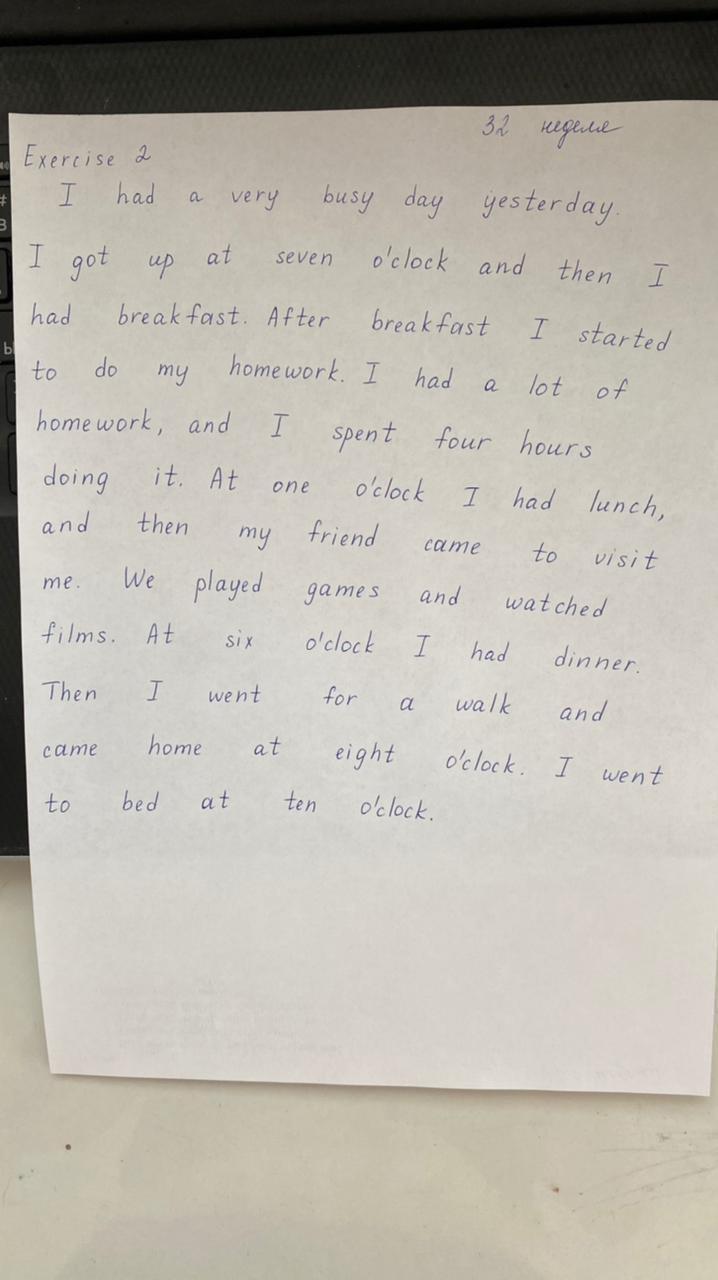 32 неделя
Exercise 2
I had a very busy day yesterday.
I got up at seven o'clock and then I
had breakfast. After breakfast I started
to do my homework. I had a lot of
homework, and I spent four hours
doing it. At one o'clock I had lunch,
and then my friend came to visit
me. We played games and watched
films. At six o'clock I had dinner.
Then I went for a walk and
came home at eight o'clock. I went
to bed at ten o'clock.